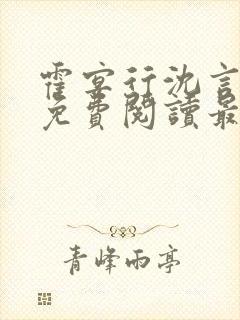 霍宴行沈言
免費閱讀最
青峰雨亭